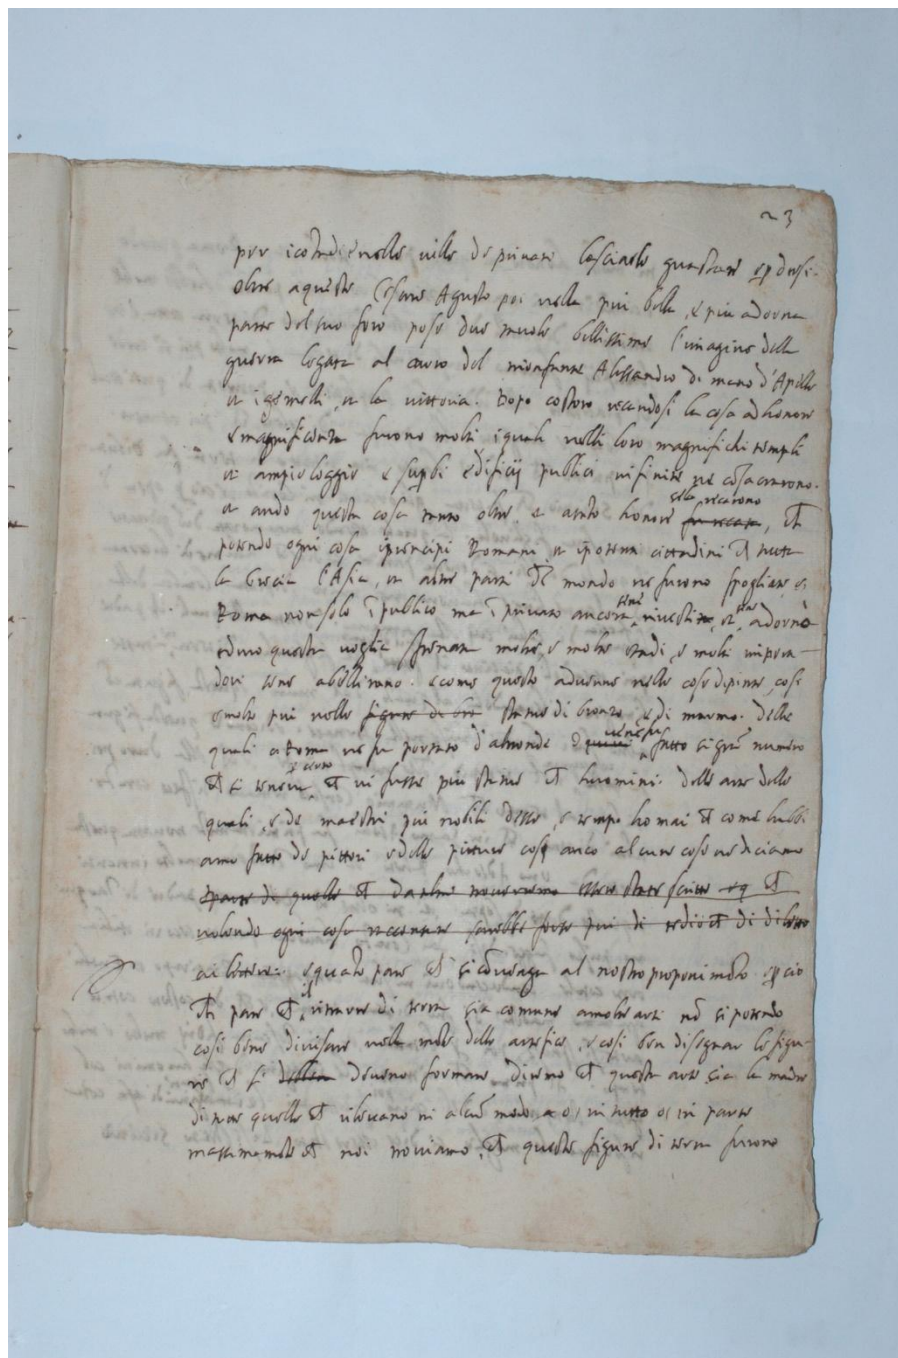 23
per i contadi e nelle ville de privati lasciarle guastare e perdersi.
oltre a queste Cesare Agusto poi nella piu bella, e piu adorna
parte del suo foro pose due tavole bellissime l'imagine della
guerra legata al carro del trionfante Alessandro di mano d'Apelle
et i gemelli, et la vittoria. Dopo costoro recandosi la cosa ad honore
e magnificentia furono molti i quali nelli loro magnifichi templi
et ampie loggie e superbi edificij publici infinite ne consecrarono.
et ando questa cosa tanto oltre, e a tanto honore se la recarono fu recata, che
potendo ogni cosa i principi Romani et i potenti cittadini che tutta
la Grecia l'Asia, et altre parti del mondo ne furono spogliate, e
Roma non solo in publico ma in privato ancora sene rivesti, et sene adornò
e duro questa voglia sfrenata molte, e molte etadi, e molti impera-
dori sene abellirano. e come questo advenne nelle cose dipinte, cosi
e molto piu nelle figure di bro statue di bronzo, e di marmo. delle
quali a Roma ne fu portato d'altronde e quivi ve ne fu fatto si gran numero
che si teneva per certo, che vi fusse piu statue che huomini. delle arte delle
quali, e de maestri piu nobili d'esse, e tempo homai che come habbi
amo fatto de pittori e delle pitture cosi anco alcune cose ne diciamo
e parte di quelle che da altri troveremo essere state scritte che
volendo ogni cosa raccontare sarebbe forse piu di tedio che di diletto
ai lettori. e quanto pare che si convenga al nostro proponimento e per cio
che pare che il ritrarre di terra sia comune a molte arti non si potendo
cosi bene divisare nella mente dello artefice, e cosi ben disegnar le figu-
re che si debbon deveno formare. diremo che questa arte sia la madre
di tutte quelle che rilevano in alcun modo o, in tutto o, in parte
massimamente che noi troviamo, che queste figure di terra furono